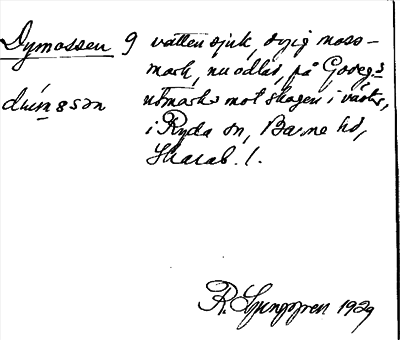 Dymossen 9 vattensjuk, dyig moss-
mark, nu odlad, på Goregs
utmarks mot skogen i väster,
dúmɵsən
i Ryda sn, Barne hd,
Skarab. l.
R. Ljunggren 1929